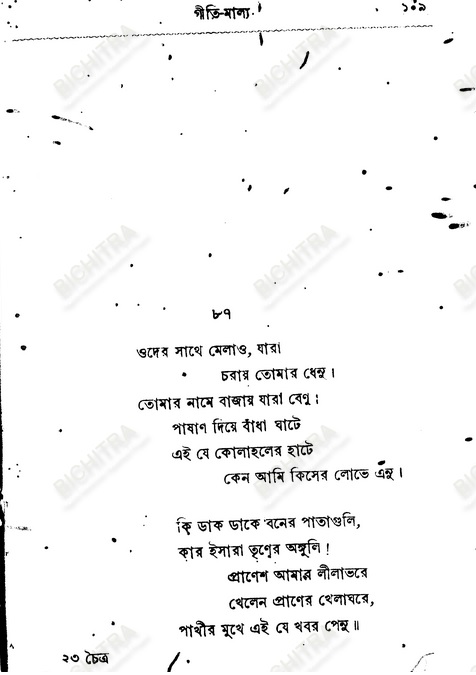 গীতি-মাল্য
১০৯
৮৭
ওদের সাথে মেলাও, যারা
চরায় তোমার ধেনু।
তোমার নামে বাজায় যারা বেণু;
পাষাণ দিয়ে বাঁধা ঘাটে
এই যে কোলাহলের হাটে
কেন আমি কিসের লোভে এনু।
কি ডাক ডাকে বনের পাতাগুলি,
কার ইসারা তৃণের অঙ্গুলি!
প্রাণেশ আমার লীলাভরে
খেলেন প্রাণের খেলাঘরে,
পাখীর মুখে এই যে খবর পেনু॥
২৩ চৈত্র
BICHITRA
BICHITRA
BICHITRA
BICHITRA
BICHITRA
BICHITRA
BICHITRA
BICHITRA